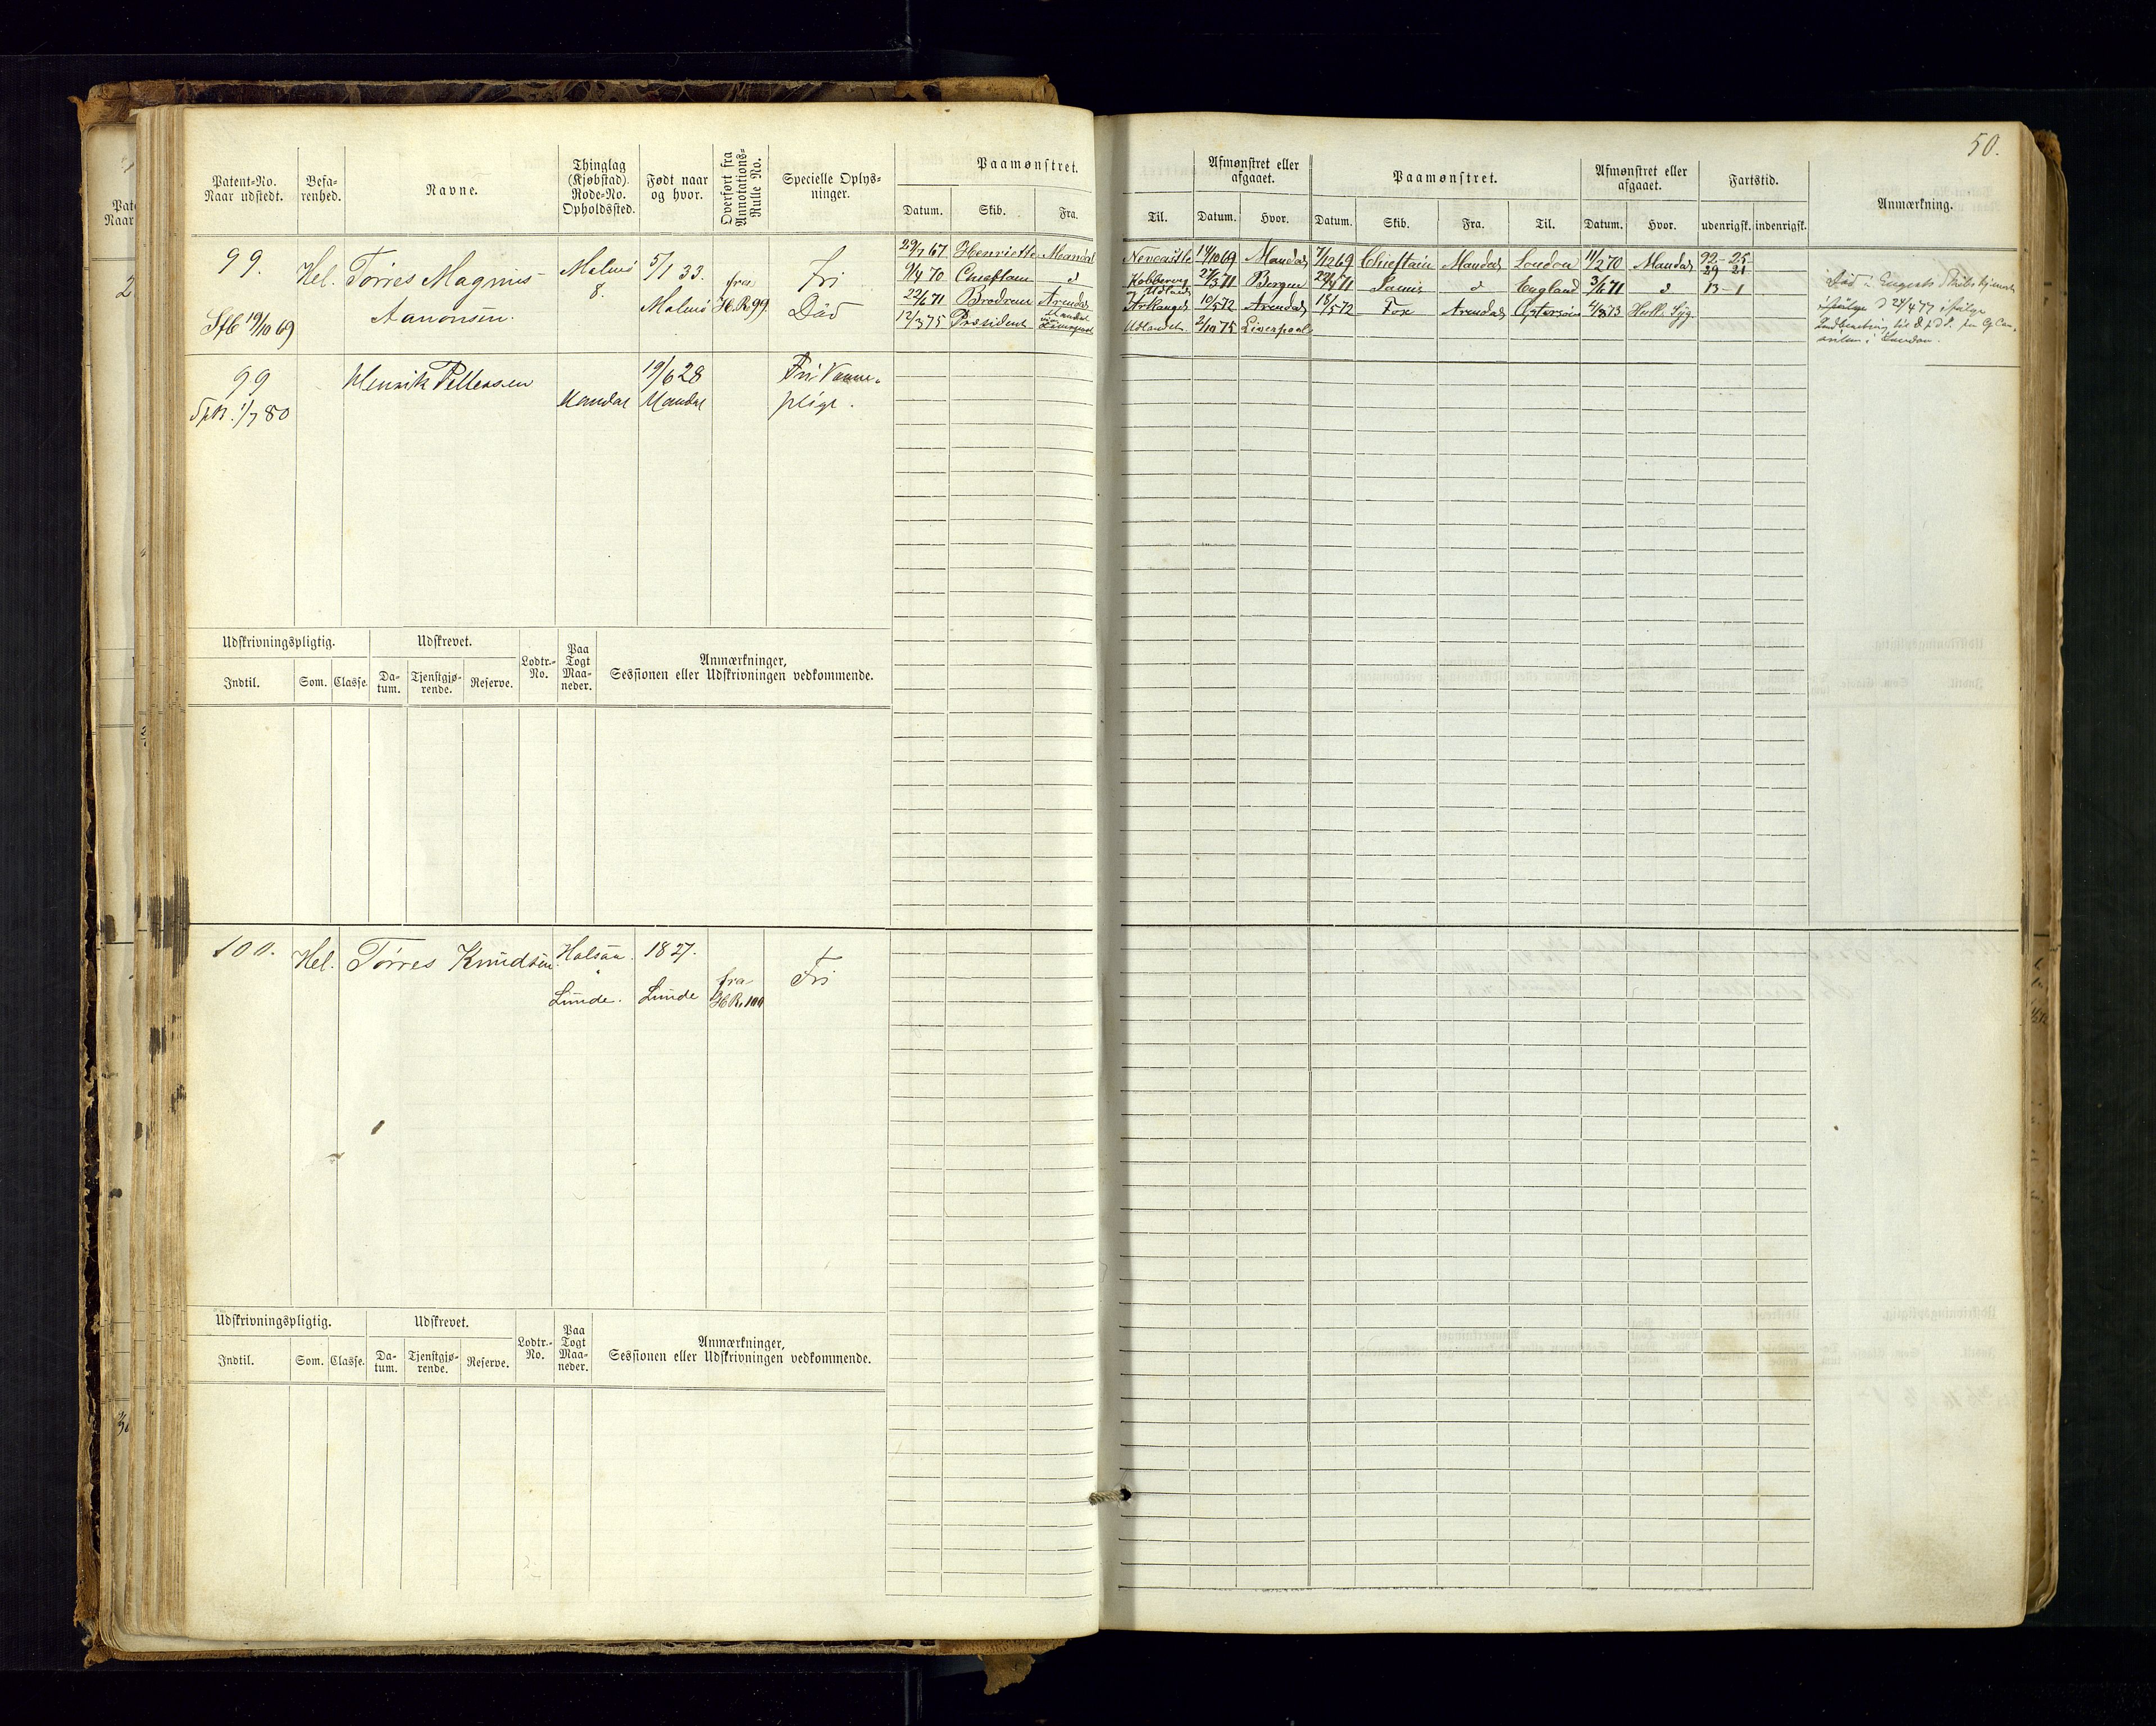 50.
Patent-No.
Naar udstedt.
Befa-
renhed.
Navne.
Thinglag
(Kjøbstad).
Rode-No.
Opholdssted.
Født naar
og hvor.
Overført fra
Annotations-
Rulle No.
Specielle Oplys-
ninger.
Paamønstret.
Datum. Skib. Fra.
Til.
Afmønstret eller
afgaaet.
Datum. Hvor.
Paamønstret.
Datum. Skib. Fra. Til.
Afmønstret eller
afgaaet.
Datum. Hvor.
Fartstid.
udenrigsk. indenrigsk.
Anmærkning.
99. Hel. Tørres Magnus
Aanonsen.
Sfb 19/10 69
Malmö
8.
5/1 33.
Malmö
fra
H.R. 99.
Fri
Död
29/7 67 Henriette Mandal Newcastle 14/10 69 Mandal 7/12 69 Chieftain Mandal London 11/2 70 Mandal 22-25
9/4 70 Chieftain d 27/3 71 Bergen d England 3/6 71 d 29-21
22/6 71 Brødrene Arendal Arkangel 10/5 72 Arendal 18/5 72 Fox Arendal Østersøen 4/8 73 Hull. Syg. 13-1
12/3 75 Præsident Udlandet 2/10 75 Liverpool
Død i Engelsk Skibstjeneste
ifølge
London.
99
1/7 80
Henrik Pettersen
Mandal
19/6 28
Mandal
Fri Værne-
pligt.
Udskrivningspligtig.
Udskrevet.
Indtil. Som. Classe.
Da-
tum.
Tjenstgjø-
rende.
Reserve.
Lodtr.-
No.
Paa
Togt
Maa-
neder.
Anmærkninger,
Sessionen eller Udskrivningen vedkommende.
100. Hel. Tørres Knudsen
Halsaa.
"
Lunde.
1827.
Lunde
fra
H.R. 100
Fri
Udskrivningspligtig.
Udskrevet.
Indtil. Som. Classe.
Da-
tum.
Tjenstgjø-
rende.
Reserve.
Lodtr.-
No.
Paa
Togt
Maa-
neder.
Anmærkninger,
Sessionen eller Udskrivningen vedkommende.